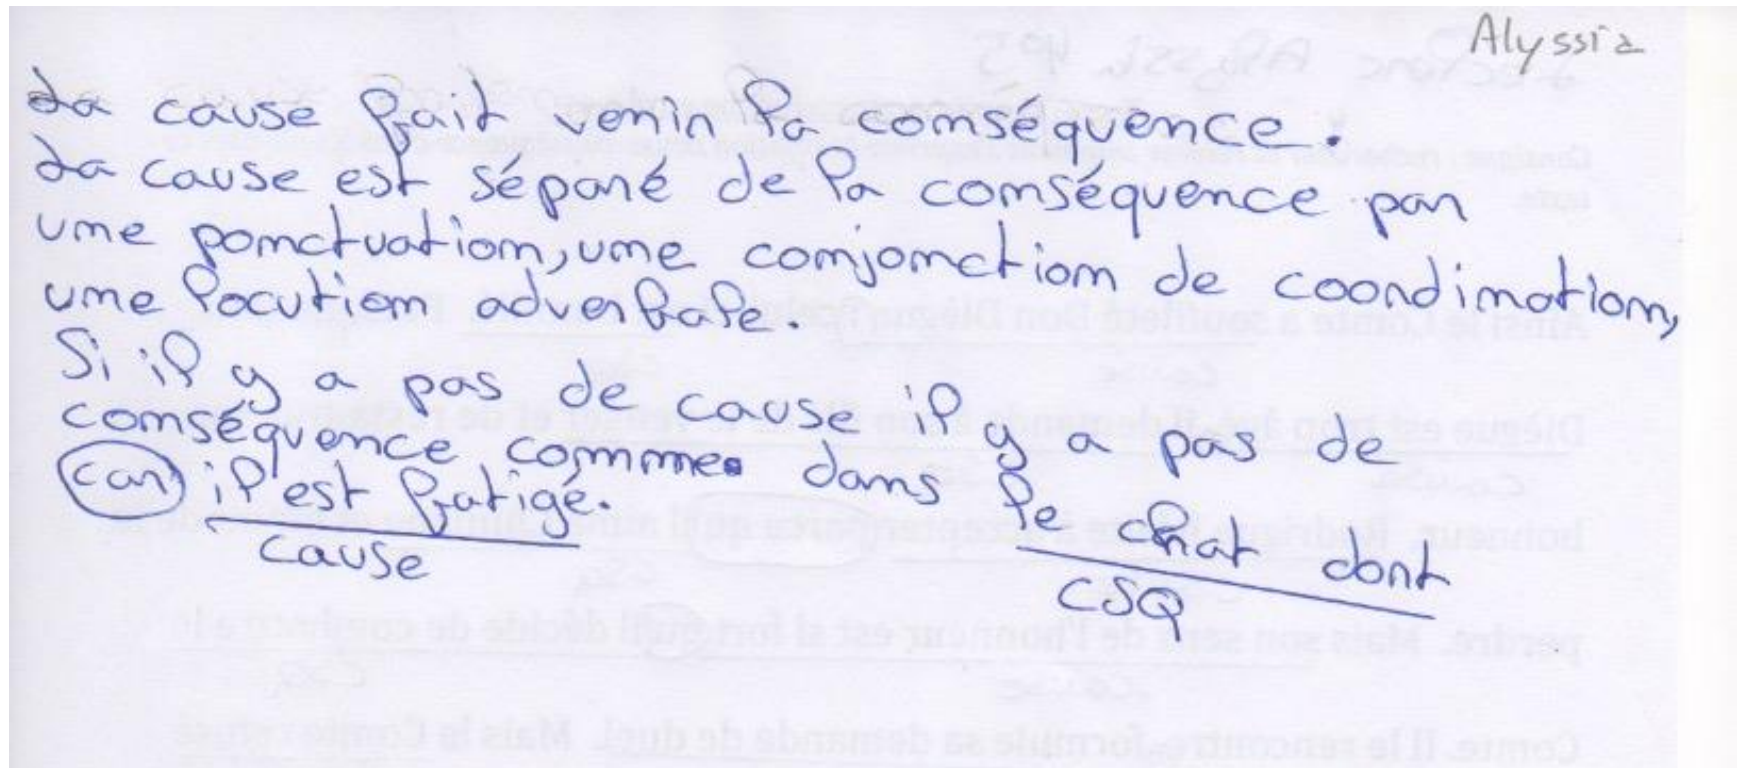 Alyssia
La cause fait venir la conséquence.
La cause est séparé de la conséquence par
une ponctuation, une conjonction de coordination,
une locution adverbale.
Si il y a pas de cause il y a pas de
conséquence comme dans le chat dort
car il est fatigé.
cause
CSQ